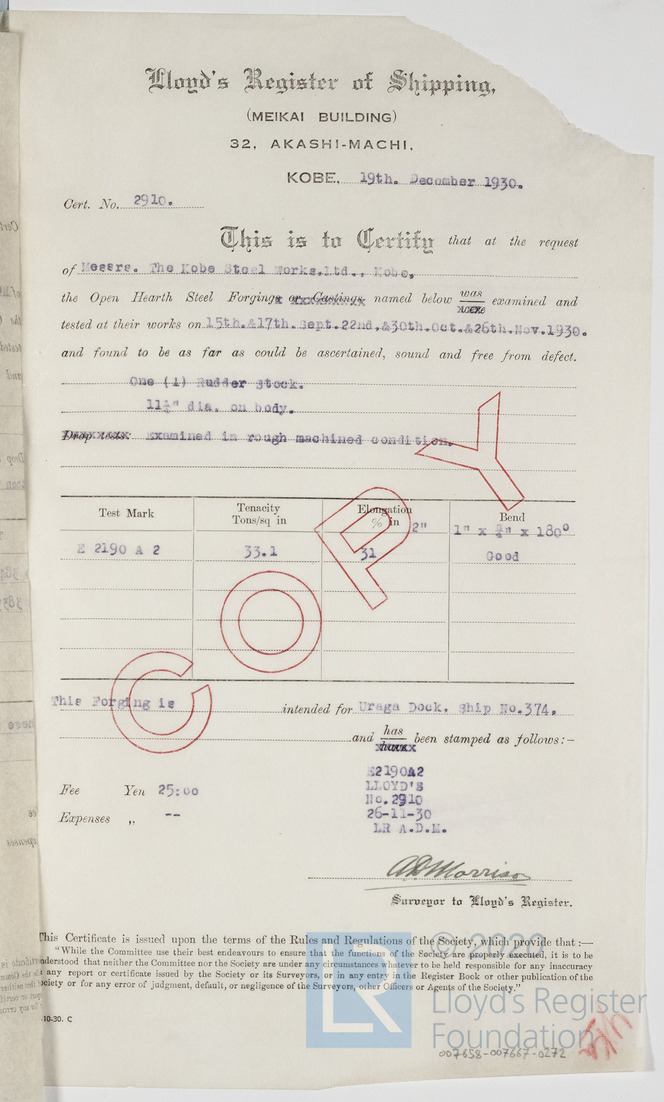 Lloyd's Register of Shipping,
(MEIKAI BUILDING)
32, AKASHI-MACHI,
KOBE, 19th. December 1930.
Cert. No. 2910.
This is to Certify that at the request
of Messrs. The Kobe Steel Works,Ltd., Kobe,
the Open Hearth Steel Forgings or Castings named below was were examined and
tested at their works on 15th.&17th.Sept.22nd,&30th.Oct.&26th.Nov.1930.
and found to be as far as could be ascertained, sound and free from defect.
One (1) Rudder Stock.
11½" dia. on body.
Drop tests: Examined in rough machined condition.
Test Mark Tenacity Tons/sq in Elongation % in 2" Bend 1" x ¾" x 180°
E 2190 A 2 33.1 31 Good
COPY
This Forging is intended for Uraga Dock, Ship No.374.
and has been stamped as follows:-
Fee Yen 25:00
Expenses ,, --
E2190A2
LLOYD'S
No.2910
26-11-30
LR A.D.M.
ADMorrison
Surveyor to Lloyd's Register.
This Certificate is issued upon the terms of the Rules and Regulations of the Society, which provide that :—
"While the Committee use their best endeavours to ensure that the functions of the Society are properly executed, it is to be
understood that neither the Committee nor the Society are under any circumstances whatever to be held responsible for any inaccuracy
in any report or certificate issued by the Society or its Surveyors, or in any entry in the Register Book or other publication of the
Society or for any error of judgment, default, or negligence of the Surveyors, other Officers or Agents of the Society."
.10-30. C
LR
© 2020
Lloyd's Register
Foundation
007658-007667-0272